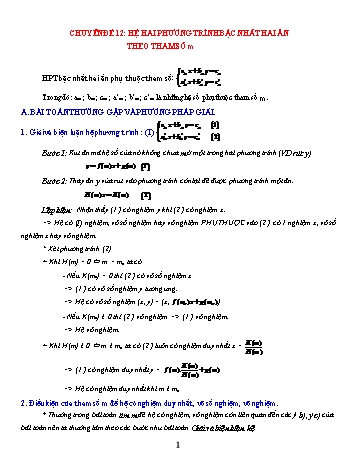 CHUYÊN ĐỀ 12: HỆ HAI PHƯƠNG TRÌNH BẬC NHẤT HAI ẨN
THEO THAM SỐ m
HPT bậc nhất hai ẩn phụ thuộc tham số: { aₘx + bₘy = cₘ
a'ₘx + b'ₘy = c'ₘ
Trong đó: aₘ; bₘ; cₘ; a'ₘ; b'ₘ; c'ₘ là những hệ số phụ thuộc tham số m.
A. BÀI TOÁN THƯỜNG GẶP VÀ PHƯƠNG PHÁP GIẢI.
1. Giải và biện luận hệ phương trình: (I) { aₘx + bₘy = cₘ (1)
a'ₘx + b'ₘy = c'ₘ (2)
Bước 1: Rút ẩn mà hệ số của nó không chứa m từ một trong hai phương trình (VD rút y)
y = f(m)x + g(m) (1)
Bước 2: Thay ẩn y vừa rút vào phương trình còn lại để được phương trình một ẩn.
H(m)x = K(m) (2)
Lập luận: Nhận thấy (1) có nghiệm y khi (2) có nghiệm x.
-> Hệ có (I) nghiệm, vô số nghiệm hay vô nghiệm PHỤ THUỘC vào (2) có 1 nghiệm x, vô số
nghiệm x hay vô nghiệm.
* Xét phương trình (2)
+ Khi H(m) = 0 ⇔ m = m₀ ta có
- Nếu K(m₀) = 0 thì (2) có vô số nghiệm x
-> (1) có vô số nghiệm y tương ứng.
-> Hệ có vô số nghiệm (x, y) = (x, f(m₀)x + g(m₀))
- Nếu K(m₀) ≠ 0 thì (2) vô nghiệm -> (1) vô nghiệm.
-> Hệ vô nghiệm.
+ Khi H(m) ≠ 0 ⇔ m ≠ m₀ ta có (2) luôn có nghiệm duy nhất x = K(m)/H(m)
-> (1) có nghiệm duy nhất y = f(m)K(m)/H(m) + g(m)
-> Hệ có nghiệm duy nhất khi m ≠ m₀
2. Điều kiện của tham số m để hệ có nghiệm duy nhất, vô số nghiệm, vô nghiệm.
* Thường trong bài toán tìm m để hệ có nghiệm, vô nghiệm còn liên quan đến các ý b), ý c) của
bài toán nên ta thường làm theo các bước như bài toán Giải và biện luận hệ.
1